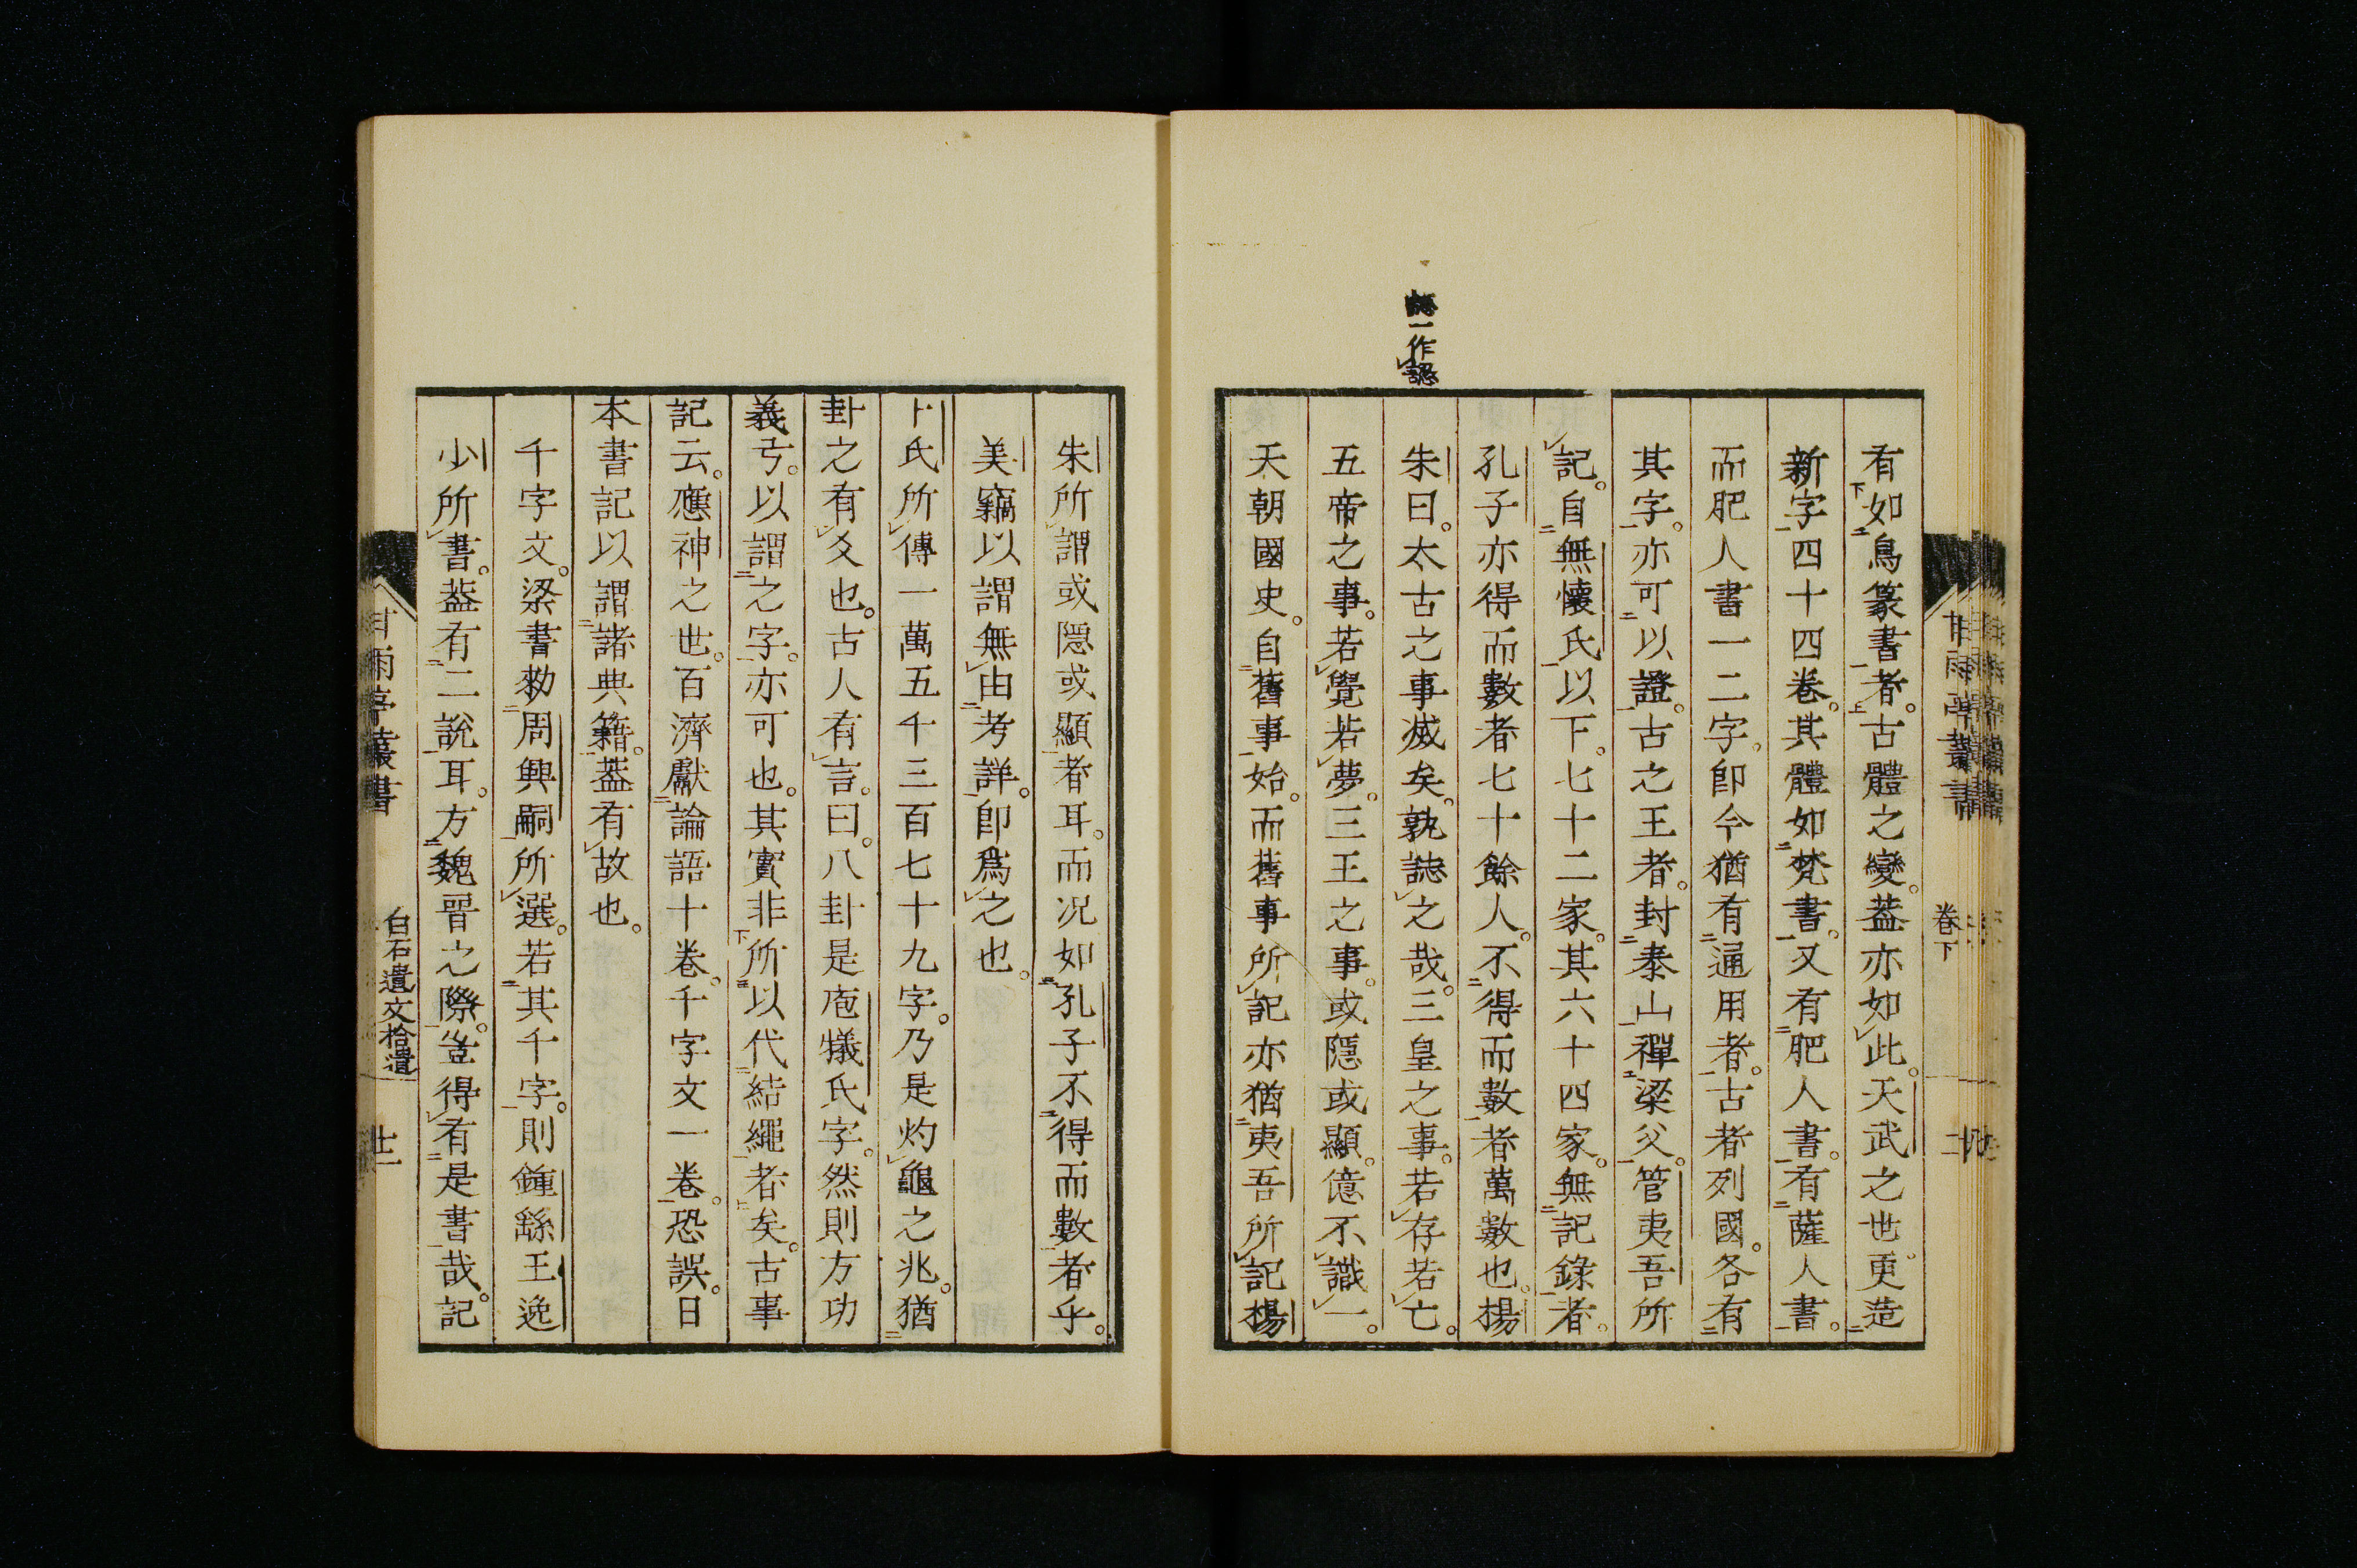 有如鳥篆書者。古體之變。葢亦如此。天武之世。更造
新字四十四卷。其體如梵書。又有肥人書。有薩人書。
而肥人書一二字。卽今猶有通用者。古者列國。各有
其字。亦可以證。古之王者。封泰山禪梁父。管夷吾所
記。自無懷氏以下。七十二家。其六十四家。無記錄者。
孔子亦得而數者七十餘人。不得而數者萬數也。揚
一作認
朱曰。太古之事滅矣。孰誌之哉。三皇之事。若存若亡。
五帝之事。若覺若夢。三王之事。或隱或顯。億不識一。
天朝國史。自舊事始。而舊事所記亦猶夷吾所記揚
卷下
朱所謂或隱或顯者耳。而况如孔子不得而數者乎。
美竊以謂無由考詳。卽爲之也。
卜氏所傳一萬五千三百七十九字。乃是灼龜之兆。猶
卦之有爻也。古人有言。曰。八卦是庖犧氏字。然則方功
義弓。以謂之字。亦可也。其實非所以代結繩者矣。古事
記云。應神之世。百濟獻論語十卷。千字文一卷。恐誤。日
本書記以謂諸典籍。葢有故也。
千字文。梁書勑周興嗣所選。若其千字。則鍾繇王逸
少所書。葢有二說耳。方魏晉之際。豈得有是書哉。記
甘雨亭叢書
白石遺文拾遺